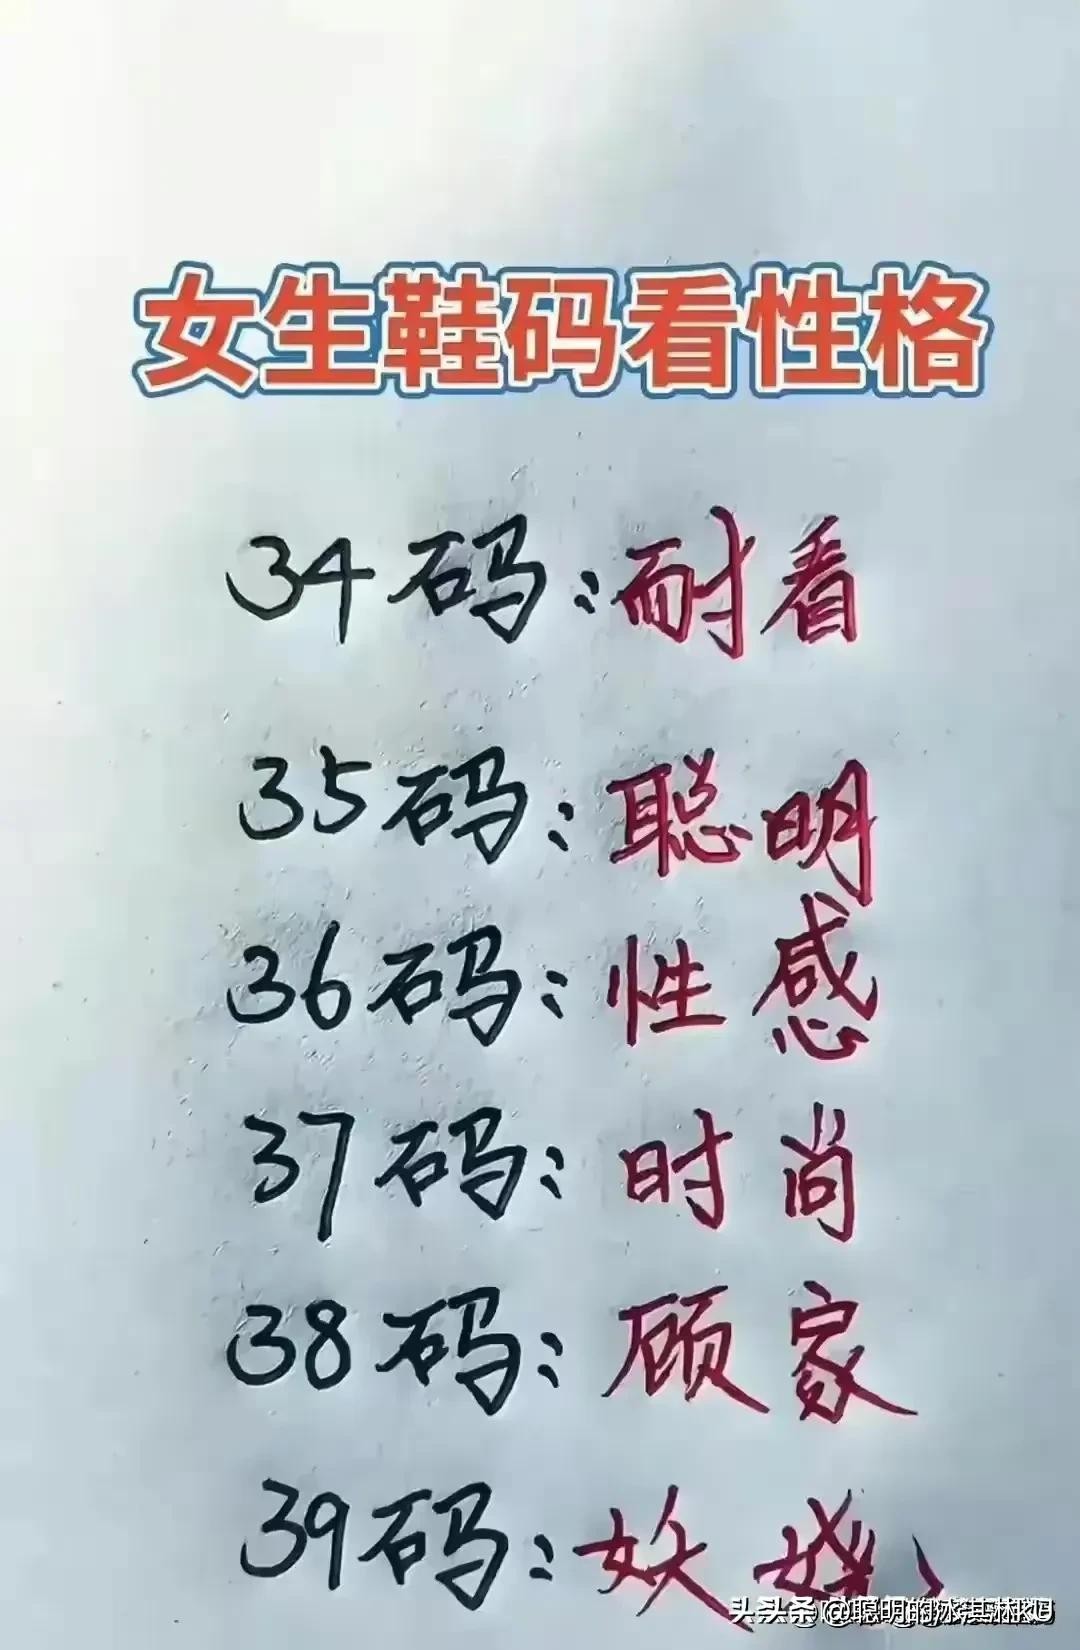 女生鞋码看性格
34码:耐看
35码:聪明
36码:性感
37码:时尚
38码:顾家
39码:妖娆
头条 @聪明的冰淇淋